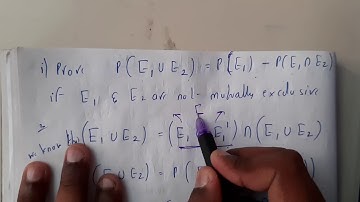 i) Prove P(E₁ ∪ E₂) = P(E₁) - P(E₁ ∩ E₂)
if E₁ & E₂ are not mutually exclusive
we know (E₁ ∪ E₂) = (E₁ E₁') ∩ (E₁ ∪ E₂)
(E₁ ∪ E₂) = P(